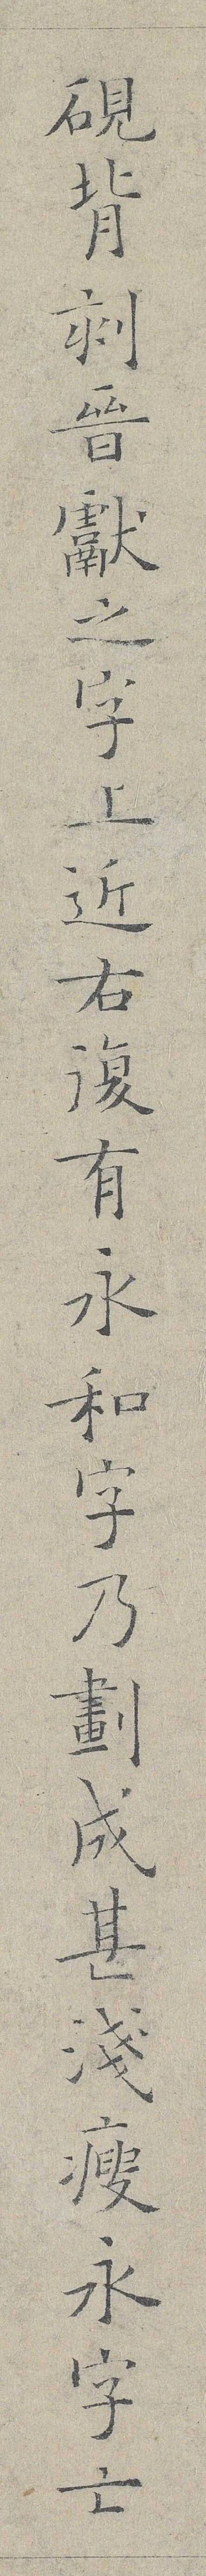 硯背刻晉獻之字上近右復有永和字乃劃成甚淺瘦永字亡